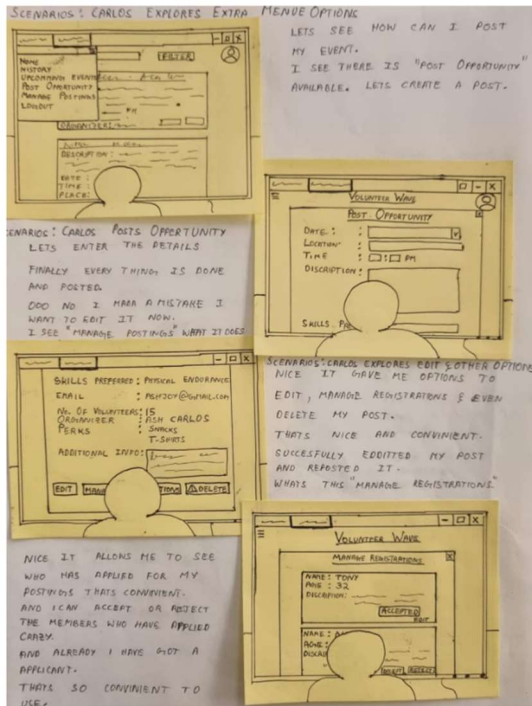 SCENARIOS: CARLOS EXPLORES EXTRA MENUE OPTIONS
FILTER
HOME
HISTORY
UPCOMMING EVENT
POST OPPORTUNITY
MANAGE POSTINGS
LOGOUT
PM
ORGANIZER:
DESCRIPTION:
DATE:
TIME:
PLACE:
LETS SEE HOW CAN I POST
MY EVENT.
I SEE THERE IS "POST OPPORTUNITY"
AVAILABLE. LETS CREATE A POST.
VOLUNTEER WAVE
POST OPPORTUNITY
DATE :
LOCATION :
TIME : PM
DISCRIPTION :
SKILLS PRE
ENARIOS: CARLOS POSTS OPPORTUNITY
LETS ENTER THE DETAILS
FINALLY EVERY THING IS DONE
AND POSTED.
OOO NO. I MADA A MISTAKE I
WANT TO EDIT IT NOW.
I SEE "MANAGE POSTINGS" WHAT IT DOES
SKILLS PREFERED : PHYSICAL ENDURANCE
EMAIL : ASHJOY@GMAIL.COM
NO. OF VOLUNTEERS: 15
ORGANIZER : ASH CARLOS
PERKS : SNACKS
T-SHIRTS
ADDITIONAL INFO:
EDIT MANA TIONS DELETE
SCENARIOS: CARLOS EXPLORES EDIT & OTHER OPTIONS
NICE IT GAVE ME OPTIONS TO
EDIT, MANAGE REGISTRATIONS & EVEN
DELETE MY POST.
THATS NICE AND CONVINIENT.
SUCCESFULLY EDDITTED MY POST
AND REPOSTED IT.
WHATS THIS "MANAGE REGISTRATIONS"
VOLUNTEER WAVE
MANAGE REGISTRATIONS
NAME: TONY
AGE: 32
DISCRIPTION:
ACCEPTED
EDIT
NAME:
DISCR
REJECT
NICE IT ALLOWS ME TO SEE
WHO HAS APPLIED FOR MY
POSTINGS THATS CONVINIENT.
AND I CAN ACCEPT OR REJECT
THE MEMBERS WHO HAVE APPLIED
CRAZY.
AND ALREADY I HAVE GOT A
APPLICANT.
THATS SO CONVINIENT TO
USE.